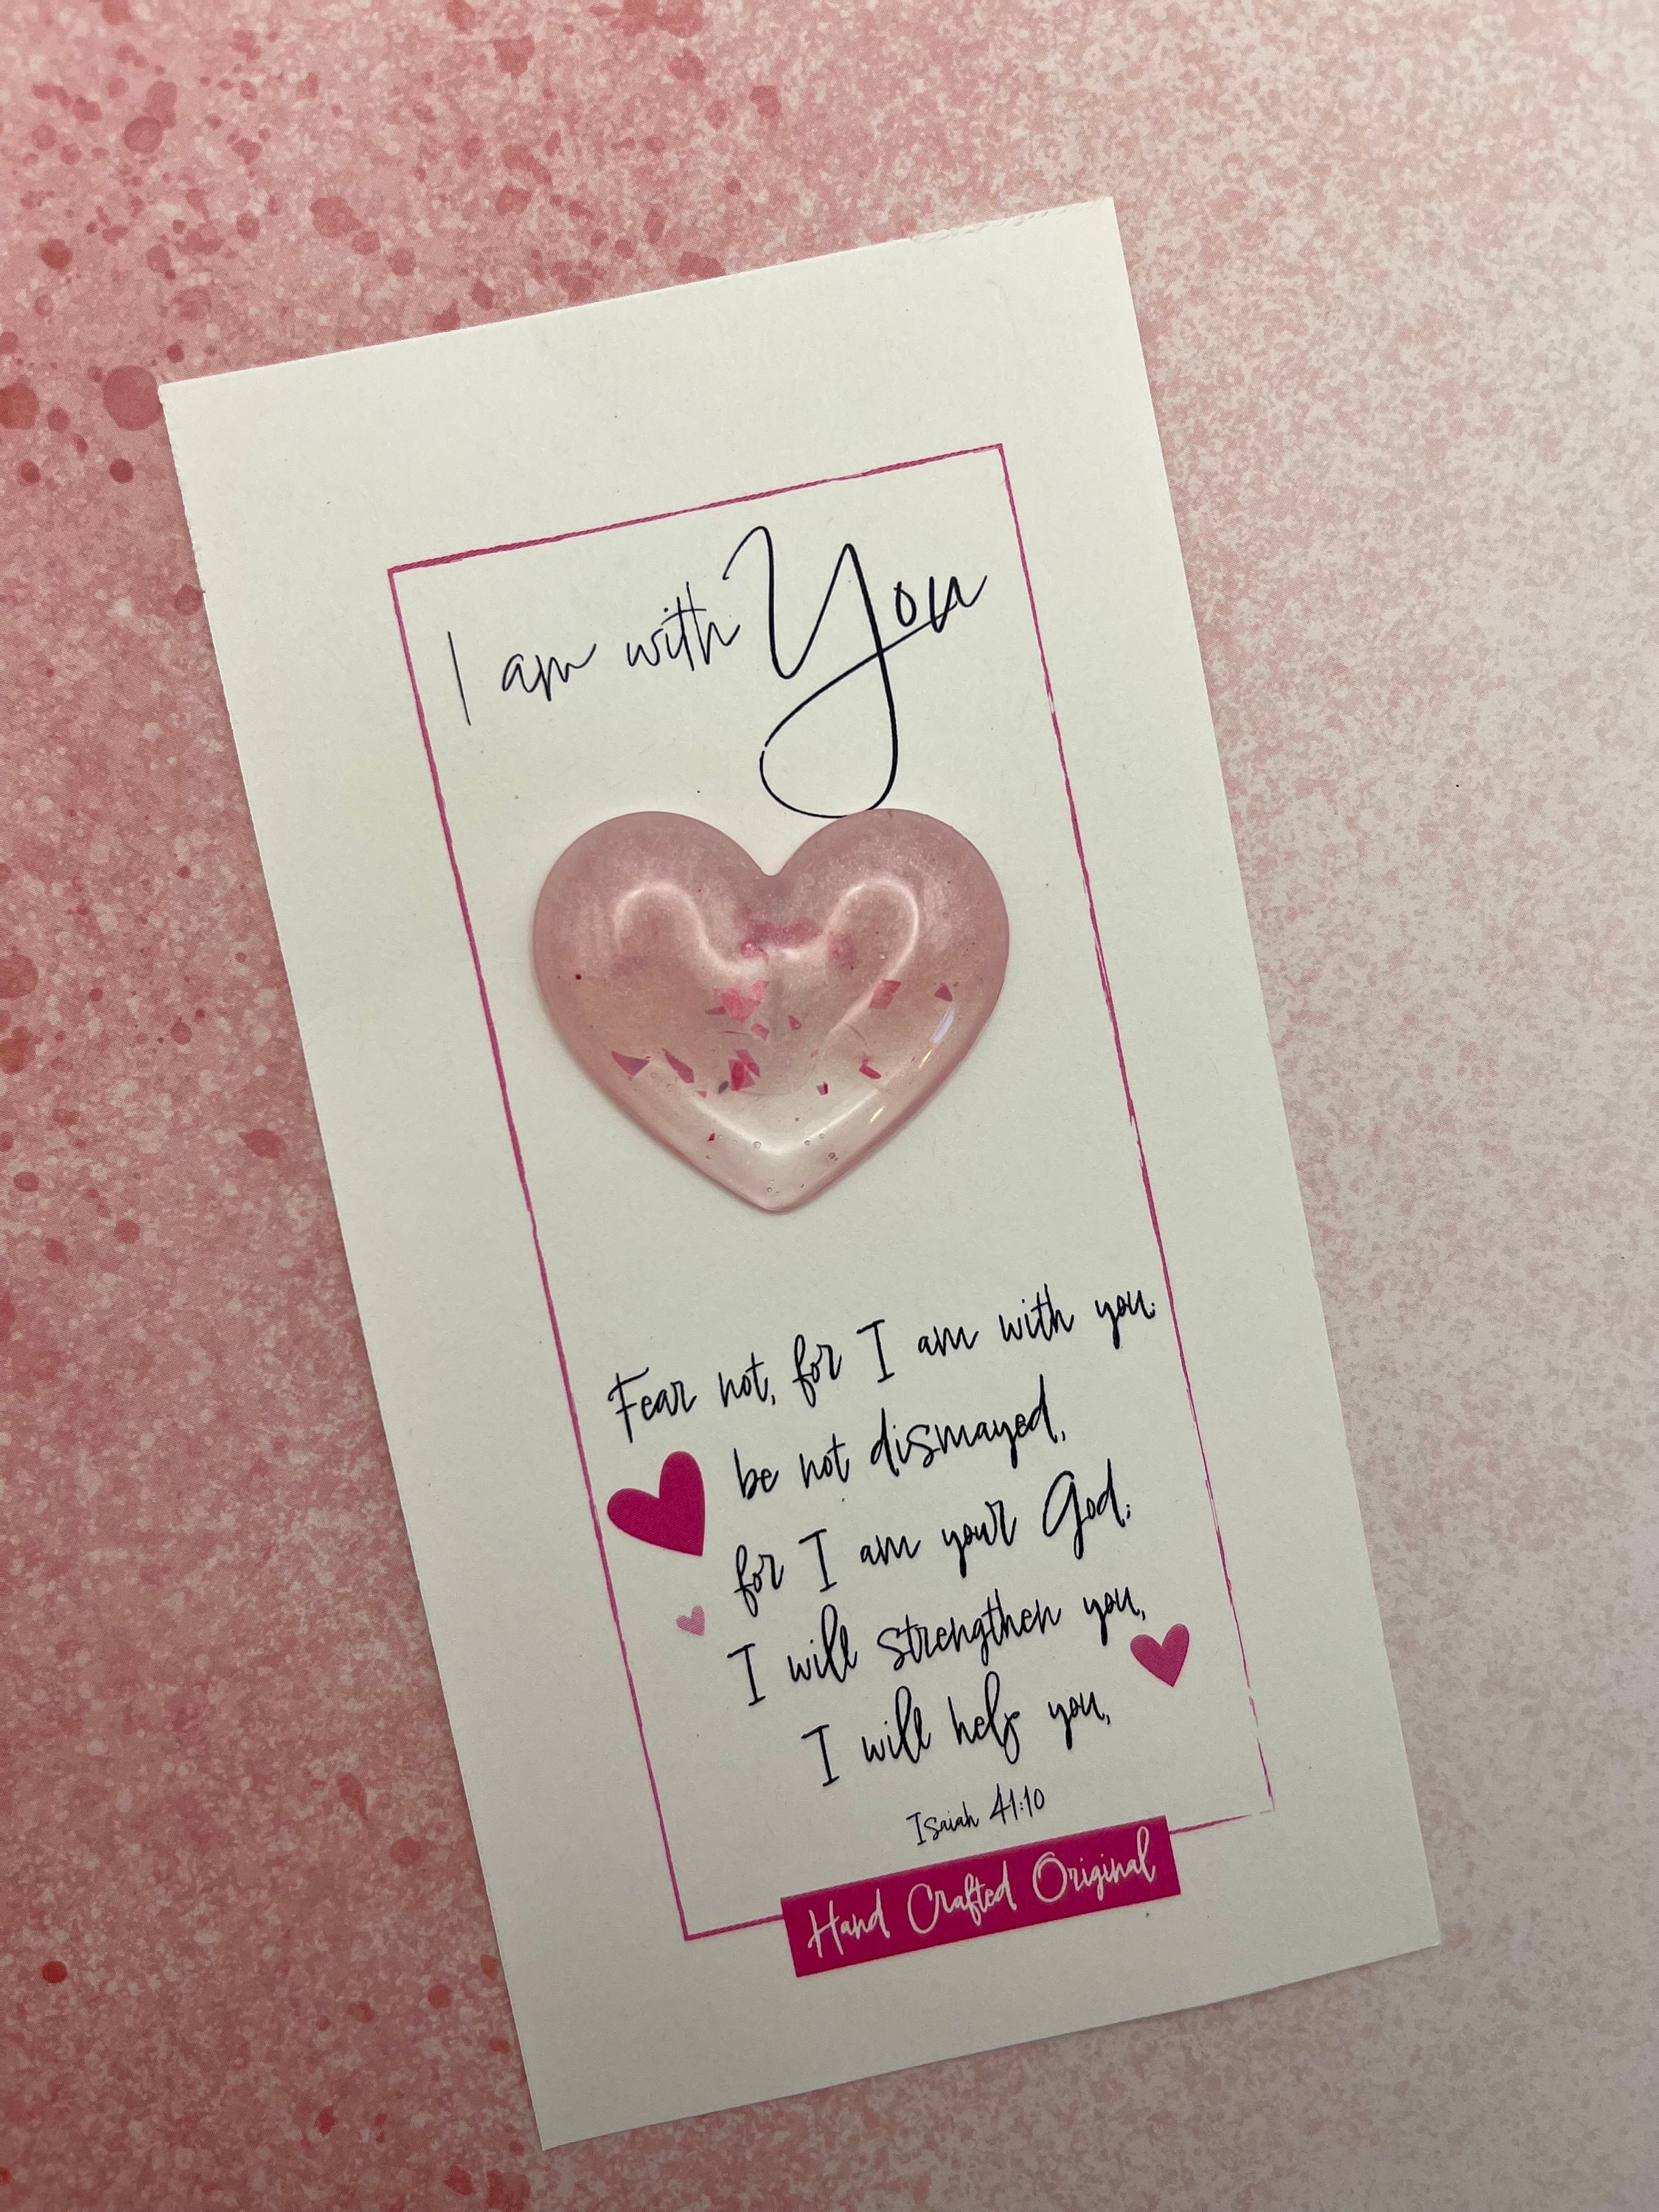 I am with You
Fear not, for I am with you;
be not dismayed,
for I am your God;
I will strengthen you,
I will help you,
Isaiah 41:10
Hand Crafted Original